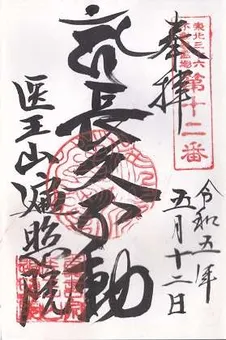 東北三十六
不動尊霊場
第十二番
奉拝
令和五年
五月十二日
長久不動
医王山
遍照院